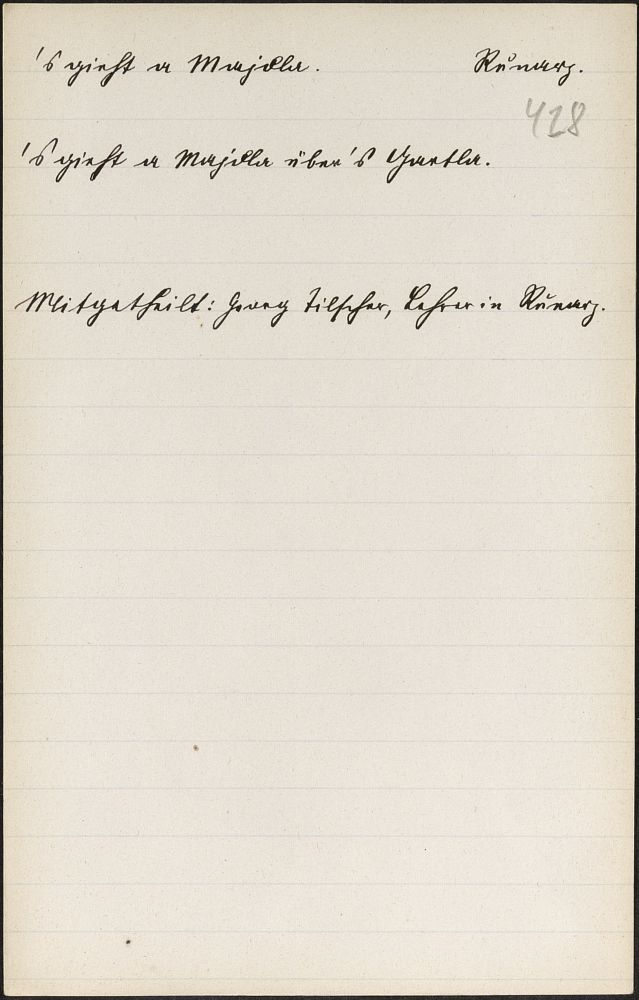 's gieht a Majdla. Runarz.
428
's gieht a Majdla über's Gartla.
Mitgetheilt: Georg Tilscher, Lehrer in Runarz.